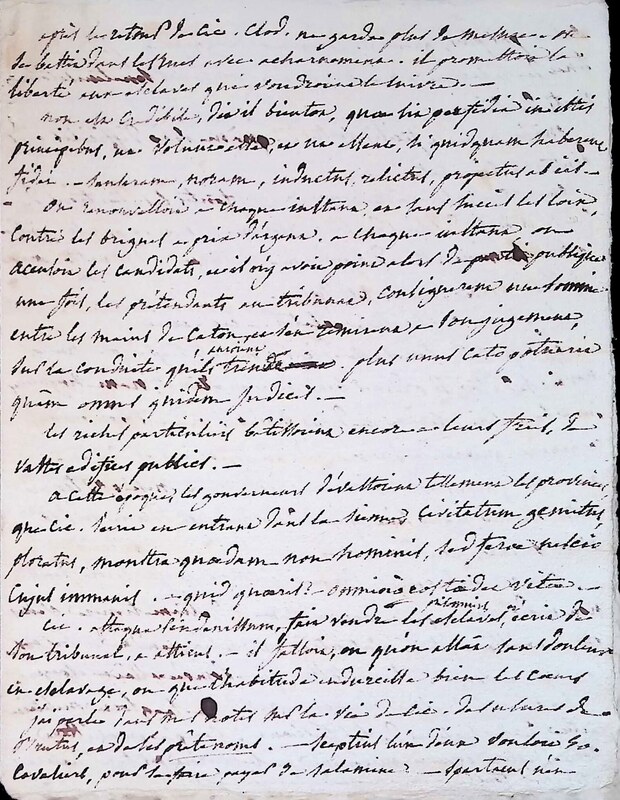 après le retour de Cic. Clod. ne garda plus de mesure. on
se battit dans les rues avec acharnement. il promettoit la
liberté aux esclaves qui voudroient le suivre. —
non est credibile, dit il bientôt, quae sit perfidia in istis
principibus, ut volunt esse, et ut essent, si quidquam haberent
fidei. — senseram, noram, inductus, relictus, projectus ab iis. —
On renouvelloit à chaque instant et sans succès les loix
contre les brigues à prix d'argent. à chaque instant on
accusoit les candidats, et il n'y avoit point alors de partie publique
une fois, les prétendants au tribunat, consignerent une somme
entre les mains de Caton, et s'en remirent à son jugement,
sur la conduite qu'ils auroient tenue. plus unus Cato potuerit
quam omnes quidem judices. —
les riches particuliers batissoient encore à leurs frais, de
vastes edifices publics. —
a cette époque les gouverneurs dévastoient tellement les provinces,
que Cic. écrit en entrant dans la sienne. Civitatum gemitus,
ploratus, monstra quaedam non hominis, sed ferae nescio
cujus immanis. — quid quaeris? omnino taedet vitae. —
Cic. attaque Pindenissum, fait vendre les esclaves, écrit de
son tribunal, à Atticus. — il falloit, ou qu'on allât sans douleur
en esclavage, ou que l'habitude endurcisse bien les coeurs
j'ai parlé dans mes notes sur la vie de Cic. des usures de
Brutus, et de ses prête noms. — Scaptius lui doux vouloit 50
cavaliers, pour se faire payer de Salamine. — Spartacus